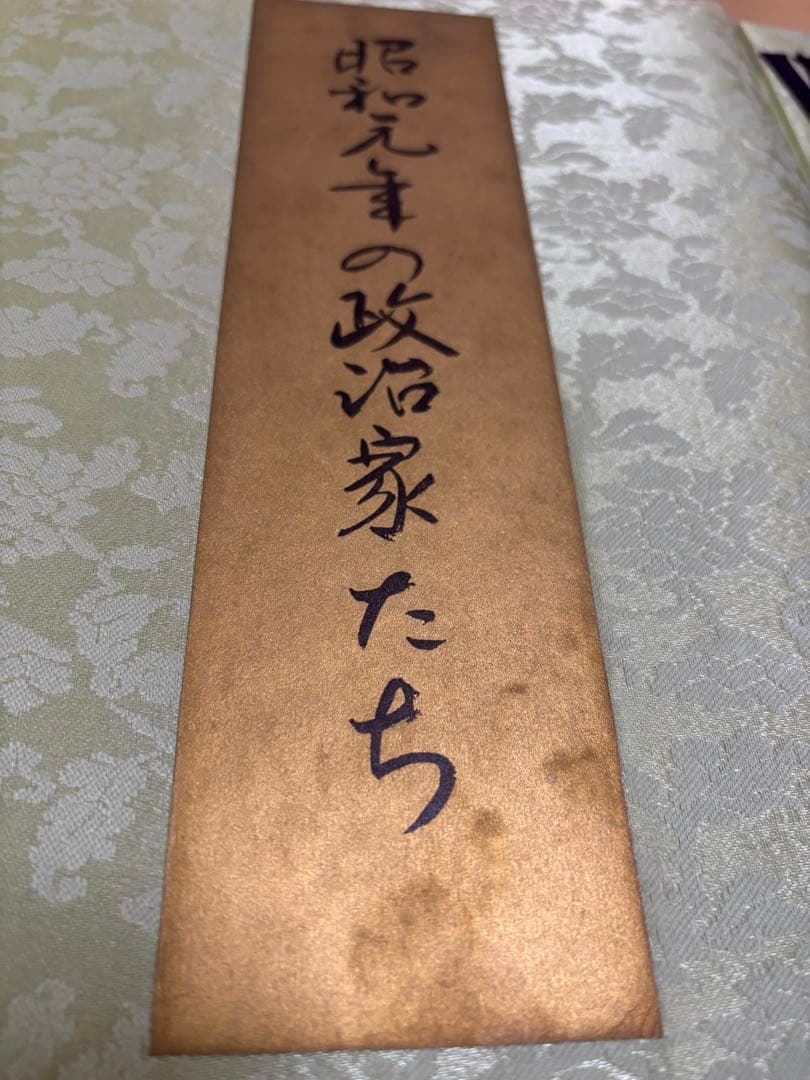 昭和元年の政治家たち